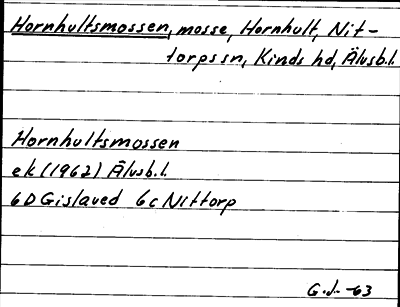 Hornhultsmossen, mosse, Hornhult, Nit-
torps sn, Kinds hd, Älvsb.l.
Hornhultsmossen
ek (1962) Älvsb.l.
6D Gislaved 6c Nittorp
G.J. -63